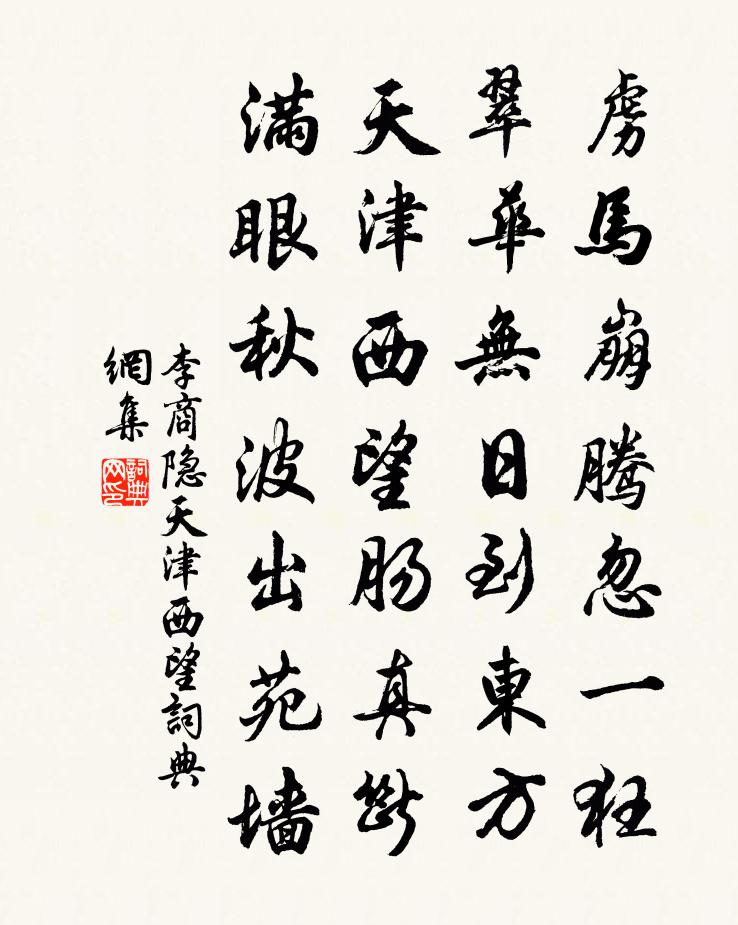 虜馬崩騰忽一狂
翠華無日到東方
天津西望腸真斷
滿眼秋波出苑墻
李商隐天津西望詞典
網集
詞典网印